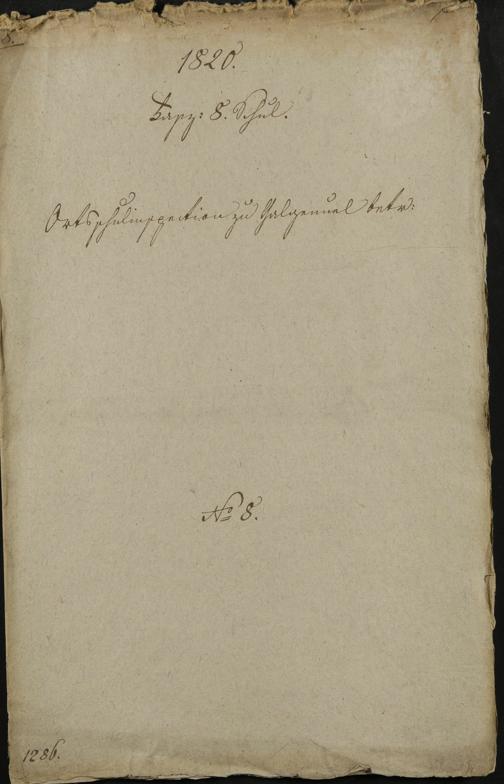 8.
1820.
8. Schul.
Ortsschulinspection zu Salgenuel betr:
No 8.
1286.